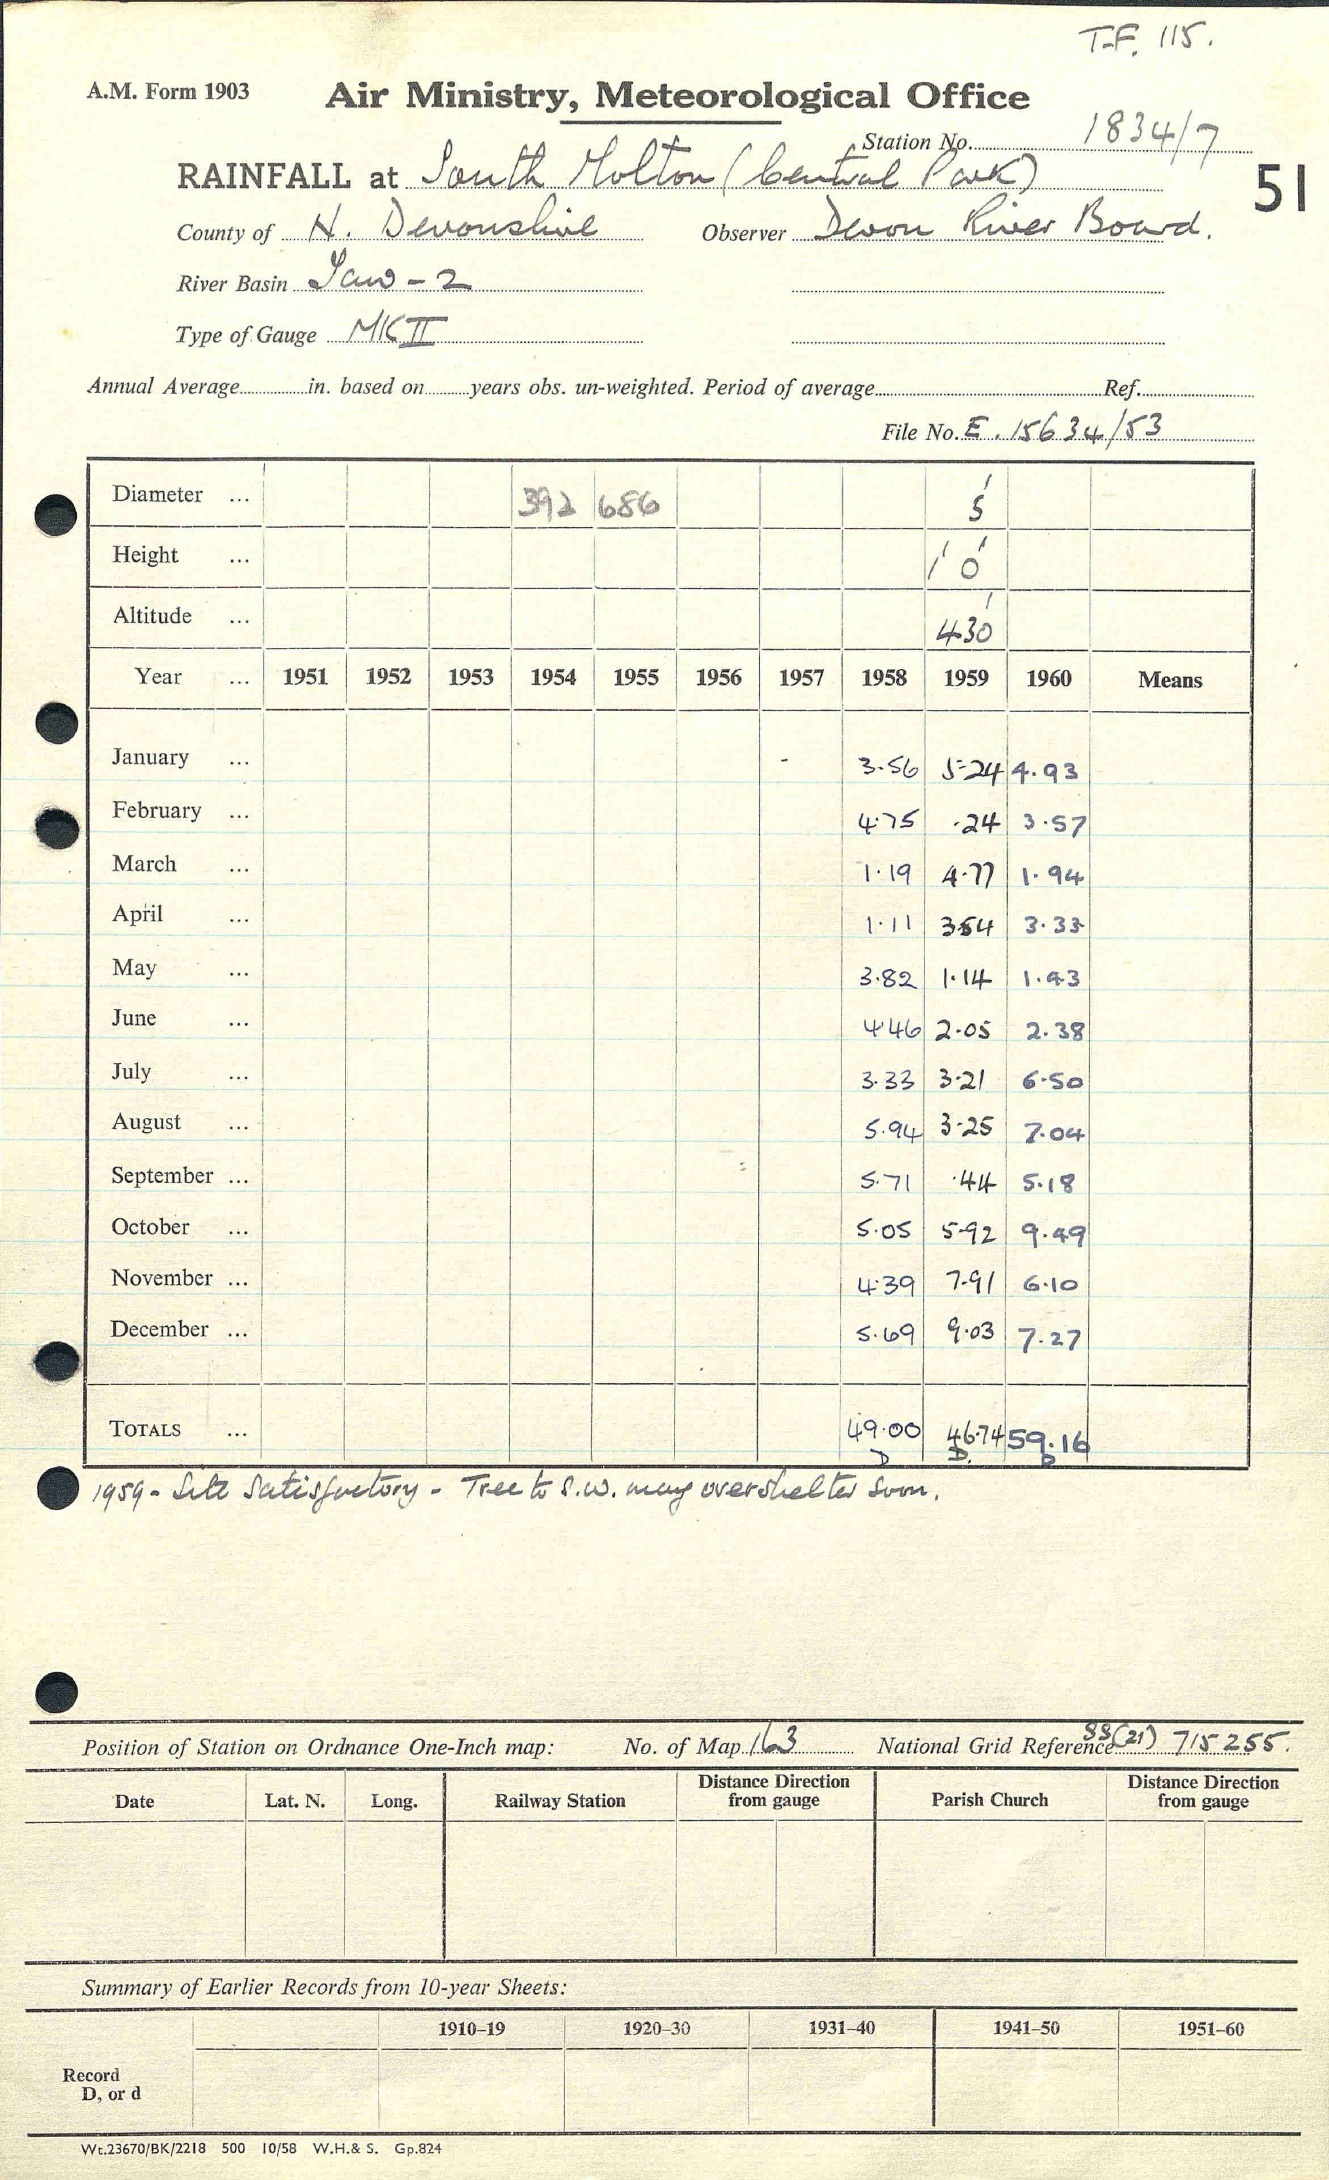 T.F. 115.
A.M. Form 1903 Air Ministry, Meteorological Office
Station No. 1834/7
RAINFALL at South Molton (Central Park) 51
County of N. Devonshire Observer Devon River Board.
River Basin Taw - 2
Type of Gauge MK II
Annual Average in. based on years obs. un-weighted. Period of average Ref.
File No. E. 15634/53
Diameter ... 392 686 5'
Height ... 1' 0'
Altitude ... 430'
Year ... 1951 1952 1953 1954 1955 1956 1957 1958 1959 1960 Means
January ... - 3.56 5.24 4.93
February ... 4.75 .24 3.57
March ... 1.19 4.77 1.94
April ... 1.11 354 3.33
May ... 3.82 1.14 1.43
June ... 4.46 2.05 2.38
July ... 3.33 3.21 6.50
August ... 5.94 3.25 7.04
September ... 5.71 .44 5.18
October ... 5.05 5.92 9.49
November ... 4.39 7.91 6.10
December ... 5.69 9.03 7.27
TOTALS ... 49.00 46.74 59.16
D D. D
1959 - Site Satisfactory - Tree to S.W. may overshelter soon.
Position of Station on Ordnance One-Inch map: No. of Map 163 National Grid Reference SS(21) 715255.
Date Lat. N. Long. Railway Station Distance Direction from gauge Parish Church Distance Direction from gauge
Summary of Earlier Records from 10-year Sheets:
1910–19 1920–30 1931–40 1941–50 1951–60
Record
D, or d
Wt.23670/BK/2218 500 10/58 W.H.& S. Gp.824